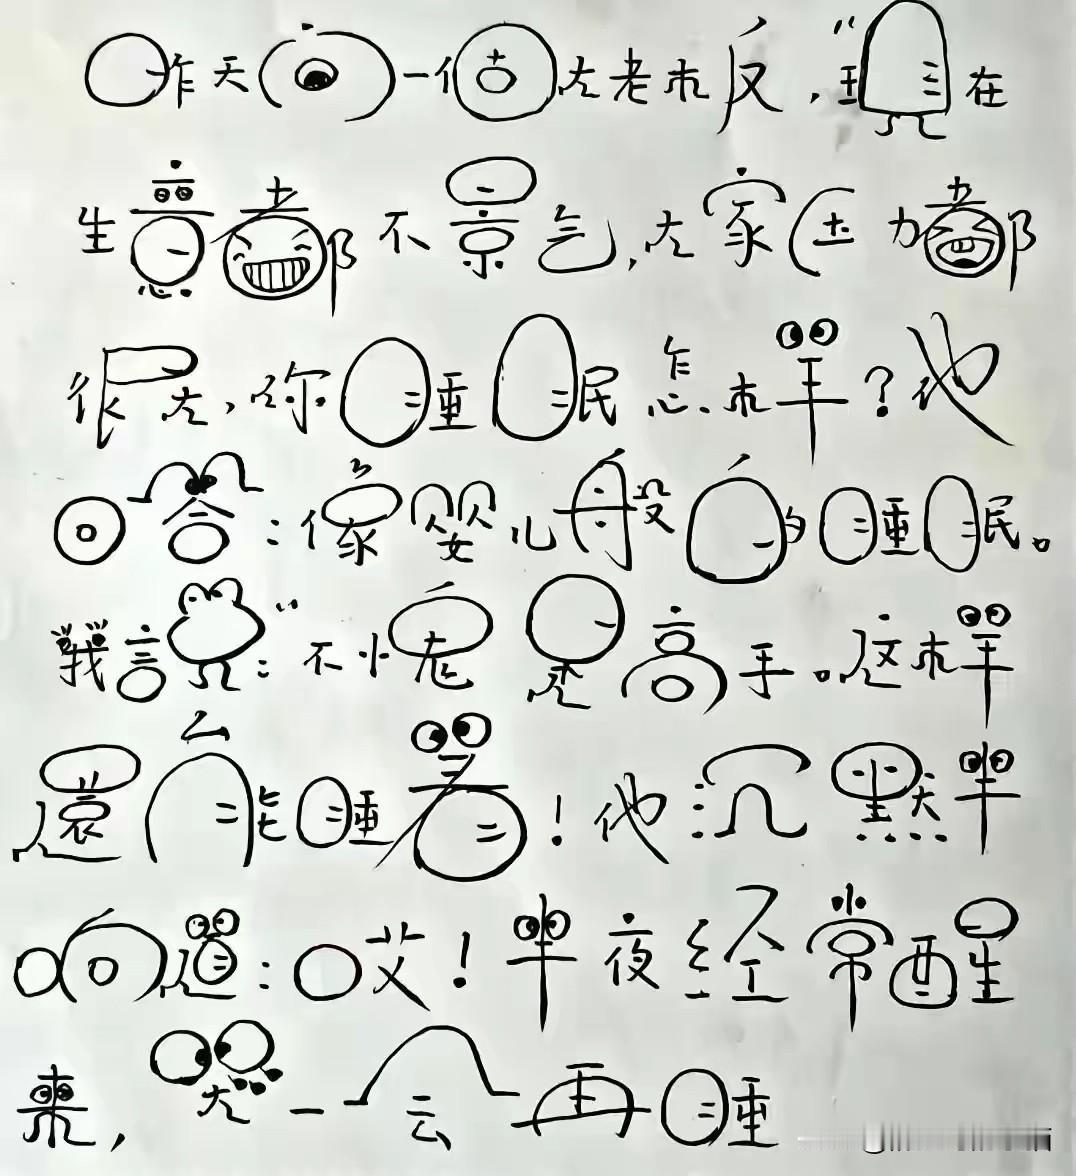 昨天问一個大老板,現在
生意都不景气,大家压力都
很大,你睡眠怎样?他
回答:像婴儿般的睡眠。
我説:不愧是高手。这样
還能睡着!他沉默半
晌道:哎!半夜经常醒
来,哭一会再睡